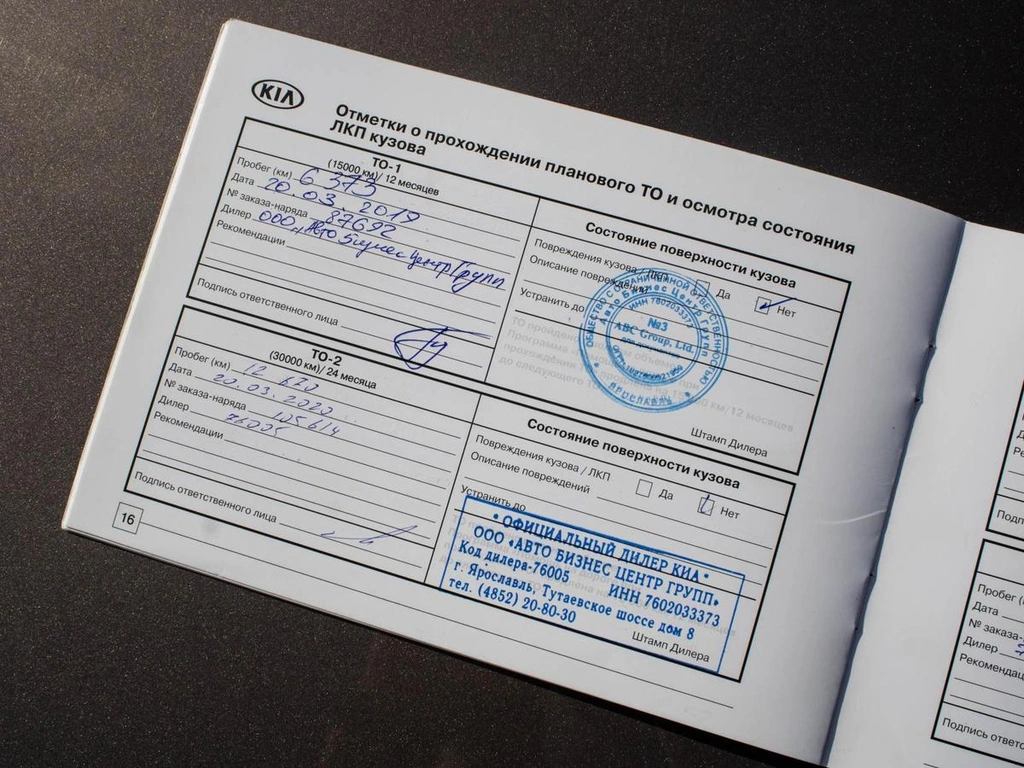 KIA
Отметки о прохождении планового ТО и осмотра состояния
ЛКП кузова
ТО-1
(15000 км)/ 12 месяцев
Пробег (км) 6 373
Дата 20.03.2019
№ заказа-наряда 87692
Дилер ООО "Авто Бизнес Центр Групп
Рекомендации
Подпись ответственного лица
Состояние поверхности кузова
Повреждения кузова / ЛКП Да Нет
Описание повреждений
Устранить до
ОБЩЕСТВО С ОГРАНИЧЕННОЙ ОТВЕТСТВЕННОСТЬЮ
Авто Бизнес Центр Групп
ИНН 7602033373
№3
ABC Group, Ltd.
ЯРОСЛАВЛЬ
Штамп Дилера
ТО-2
(30000 км)/ 24 месяца
Пробег (км) 12 670
Дата 20.03.2020
№ заказа-наряда 105614
Дилер 76005
Рекомендации
Подпись ответственного лица
Состояние поверхности кузова
Повреждения кузова / ЛКП Да Нет
Описание повреждений
Устранить до
• ОФИЦИАЛЬНЫЙ ДИЛЕР КИА •
ООО «АВТО БИЗНЕС ЦЕНТР ГРУПП»
Код дилера-76005 ИНН 7602033373
г. Ярославль, Тутаевское шоссе дом 8
тел. (4852) 20-80-30
Штамп Дилера
16
Пробег (
Дата
№ заказа-
Дилер
Рекомендац
Подпись ответс